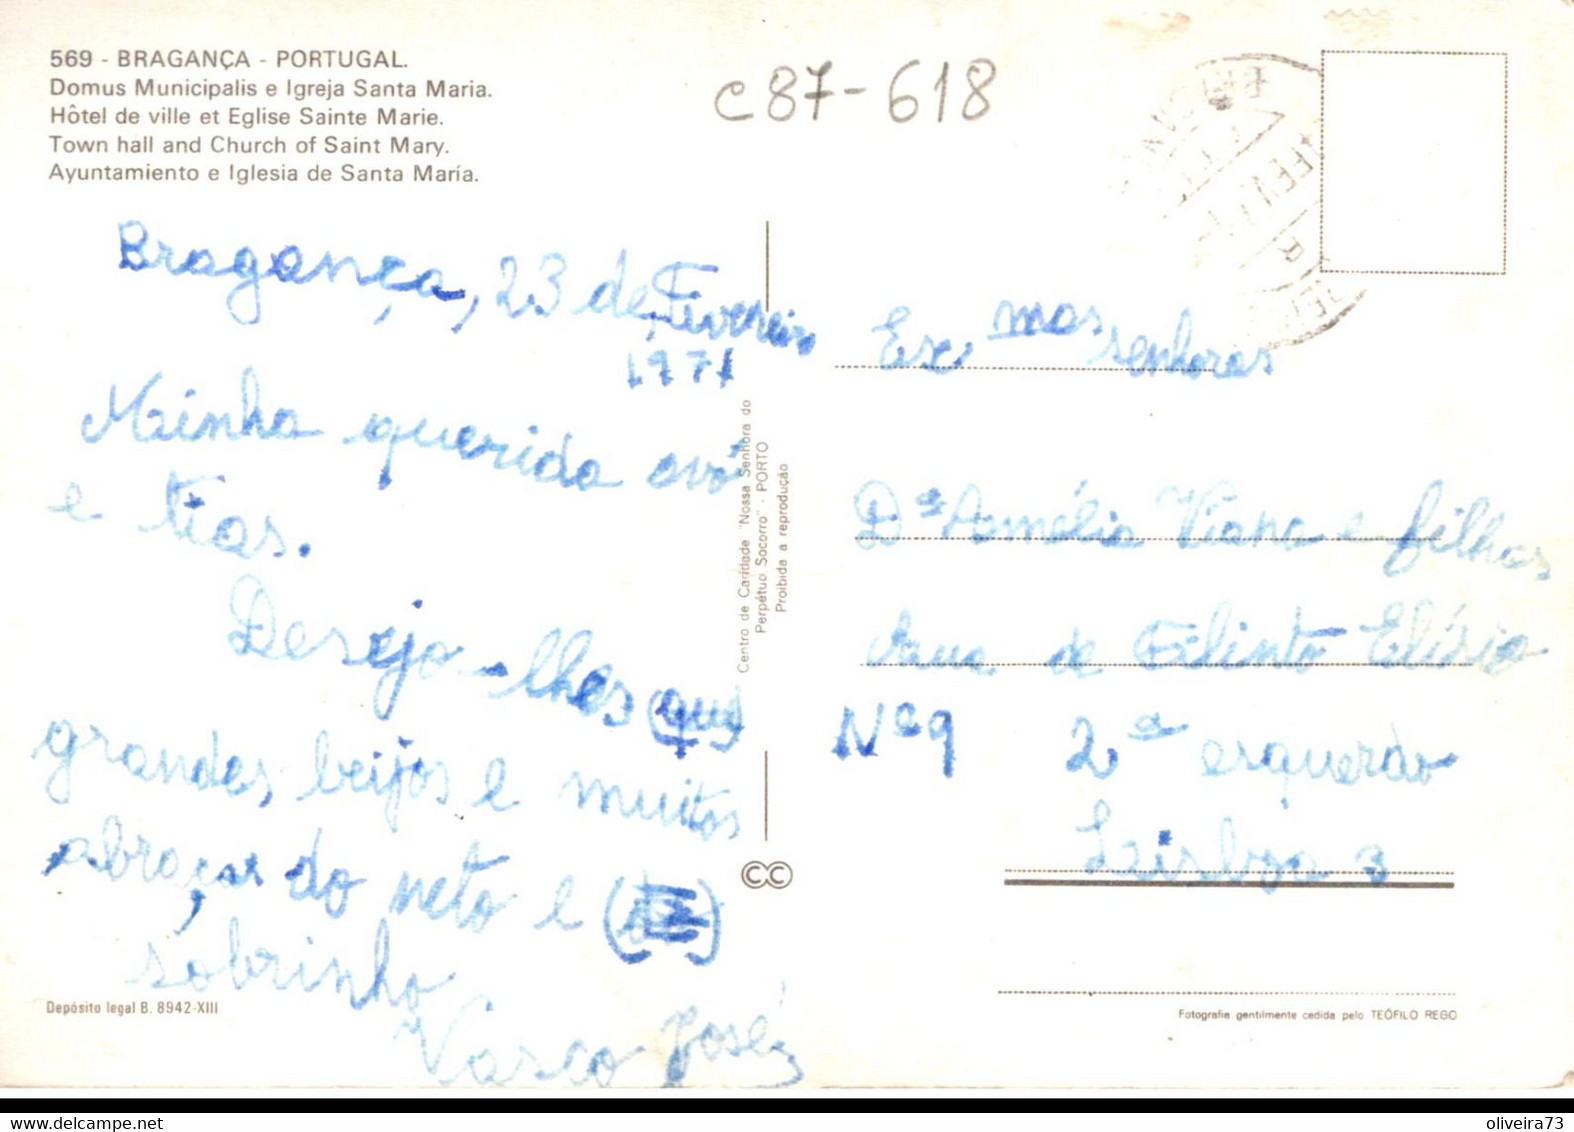 569 - BRAGANÇA - PORTUGAL.
Domus Municipalis e Igreja Santa Maria.
Hôtel de ville et Eglise Sainte Marie.
Town hall and Church of Saint Mary.
Ayuntamiento e Iglesia de Santa María.
c87-618
Bragança, 23 de Fevereiro
1971
Minha querida avó
e tias.
Desejo-lhes (que)
grandes beijos e muitos
abraços do neto e
sobrinho
Vasco José
Depósito legal B. 8942-XIII
Centro de Caridade "Nossa Senhora do
Perpétuo Socorro" - PORTO
Proibida a reprodução
CC
Ex mas senhoras
D.ª Amélia Viana e filhas
Rua de Filinto Elísio
Nº 9 2ª esquerdo
Lisboa 3
Fotografia gentilmente cedida pelo TEÓFILO REGO
oliveira73